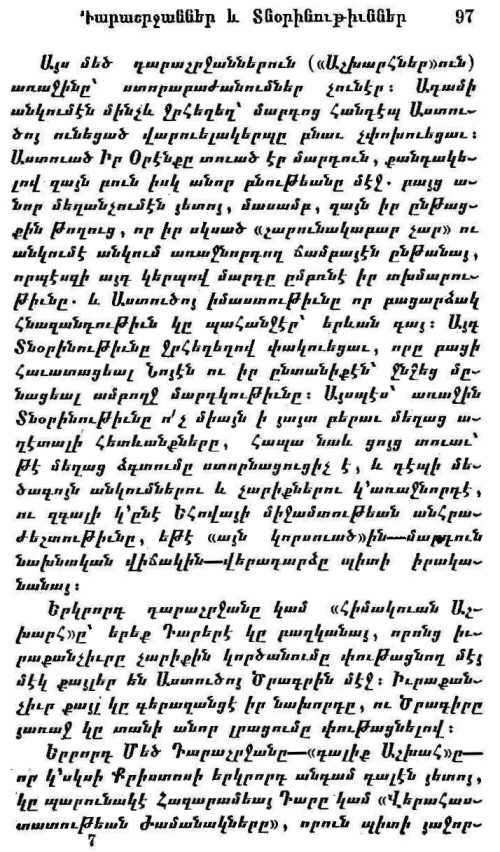 Դարաշրջաններ և Տնօրինութիւններ 97
Այս մեծ դարաշրջաններուն («Աշխարհներ»ուն)
առաջինը՝ ստորաբաժանումներ չունէր։ Ադամի
անկումէն մինչև Ջրհեղեղ՝ մարդոց հանդէպ Աստու-
ծոյ ունեցած վարուելակերպը բնաւ չփոխուեցաւ։
Աստուած Իր Օրէնքը տուած էր մարդուն, քանդակե-
լով զայն բուն իսկ անոր բնութեանը մէջ. բայց ա-
նոր մեղանչումէն յետոյ, մասամբ, զայն իր ընթաց-
քին թողուց, որ իր սկսած «շարունակաբար չար» ու
անկումէ անկում առաջնորդող ճամբայէն ընթանայ,
որպէսզի այդ կերպով մարդը ըմբռնէ իր տխմարու-
թիւնը. և Աստուծոյ իմաստութիւնը որ բացարձակ
Հնազանդութիւն կը պահանջէր՝ երևան գայ։ Այդ
Տնօրինութիւնը Ջրհեղեղով փակուեցաւ, որը բացի
Հաւատացեալ Նոյէն ու իր ընտանիքէն՝ ջնջեց մը-
նացեալ ամբողջ մարդկութիւնը։ Այսպէս՝ առաջին
Տնօրինութիւնը ո՛չ միայն ի յայտ բերաւ մեղաց ա-
ղէտալի հետևանքները, Հապա նաև ցոյց տուաւ՝
թէ մեղաց ձգտումը ստորնացուցիչ է, և դէպի մե-
ծագոյն անկումներու և չարիքներու կ՚առաջնորդէ,
ու զգալի կ՚ընէ Եհովայի միջամտութեան անհրա-
ժեշտութիւնը, եթէ «այն կորսուած»ին—մարդուն
նախնական վիճակին—վերադարձը պիտի իրակա-
նանայ։
Երկրորդ դարաշրջանը կամ «Հիմակուան Աշ-
խարհ»ը՝ երեք Դարերէ կը բաղկանայ, որոնց իւ-
րաքանչիւրը չարիքին կործանումը փութացնող մէյ
մէկ քայլեր են Աստուծոյ Ծրագրին մէջ։ Իւրաքան-
չիւր քայլ կը գերազանցէ իր նախորդը, ու Ծրագիրը
յառաջ կը տանի անոր լրացումը փութացնելով։
Երրորդ Մեծ Դարաշրջանը—«գալիք Աշխահ»ը—
որ կ՚սկսի Քրիստոսի երկրորդ անգամ գալէն յետոյ,
կը պարունակէ Հազարամեայ Դարը կամ «Վերահաս-
տատութեան Ժամանակները», որուն պիտի յաջոր-
7